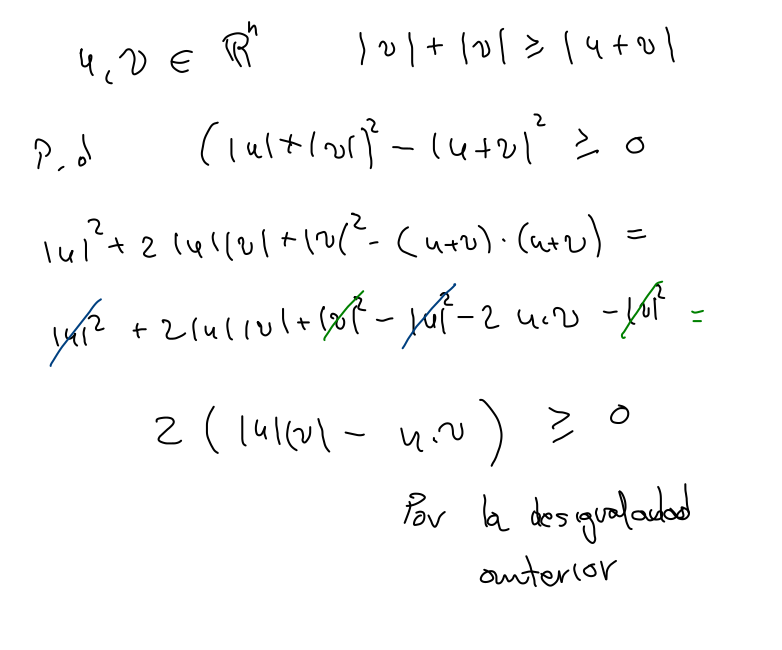 u, v ∈ ℝⁿ |v| + |v| ≥ |u + v|
P.d (|u| + |v|)² - |u + v|² ≥ 0
|u|² + 2|u||v| + |v|² - (u+v)·(u+v) =
|u|² + 2|u||v| + |v|² - |u|² - 2 u·v - |v|² =
2(|u||v| - u·v) ≥ 0
Por la desigualdad
anterior